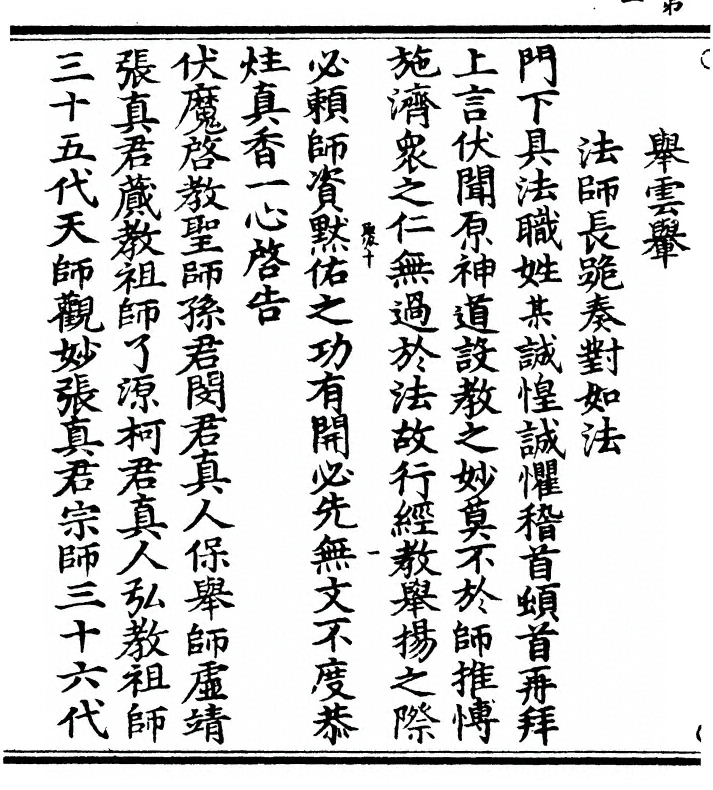 舉雲轝
法師長跪奏對如法
門下具法職姓某誠惶誠懼稽首頓首再拜
上言伏聞原神道設教之妙莫不於師推博
施濟眾之仁無過於法故行經教舉揚之際
必賴師資默佑之功有開必先無文不度恭
炷真香一心啓告
伏魔啓教聖師孫君閔君真人保舉師虛靖
張真君蕆教祖師了源柯君真人弘教祖師
三十五代天師觀妙張真君宗師三十六代